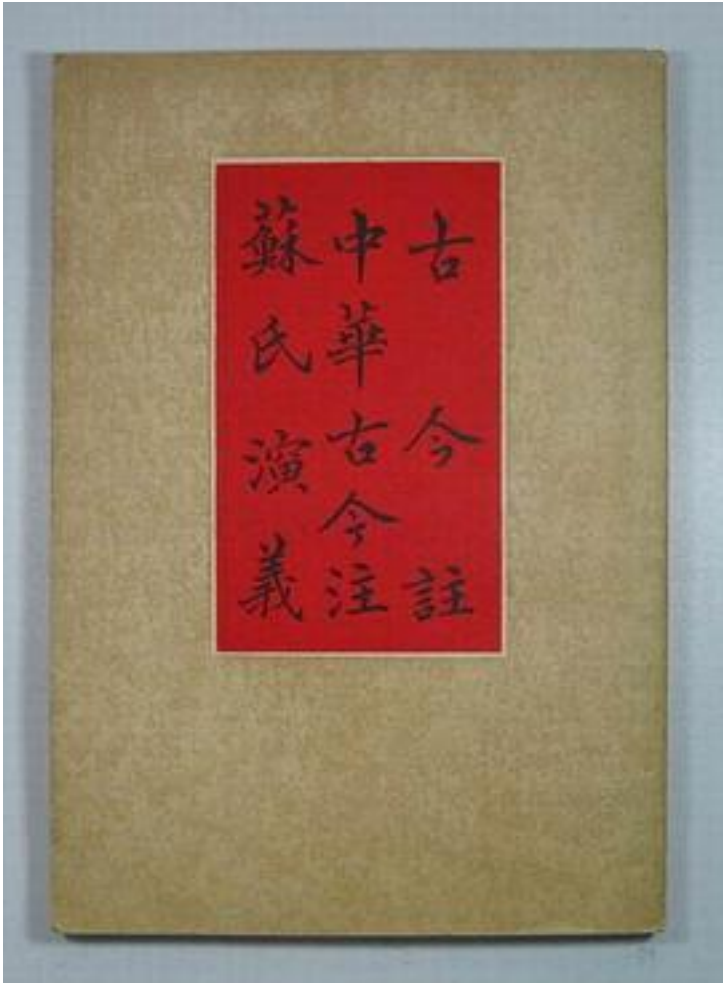 古今註
中華古今注
蘇氏演義